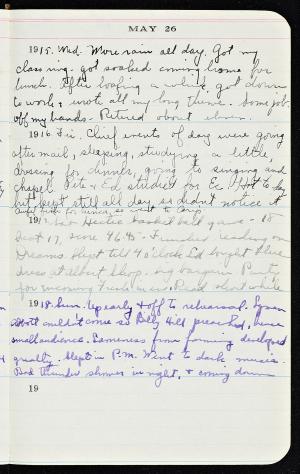 MAY 26
1915. Wed. More rain all day. Got my
class ring. got soaked coming home for
lunch. After loafing a while, got down
to work & wrote all my long theme. Some job.
Off my hands. Retired about eleven.
1916. Fri. Chief events of day were going
after mail, sleeping, studying a little,
dressing for dinner, going to singing and
chapel. & Ed studied for Ec. Hot to-day
but kept still all day so didn't notice it
19 Sat. Hectic basket ball game - 18
score 46-45. Finished reading on
Dreams. Slept till 4 o'clock. Ed bought blue
dress at Shop. bargain. Party
for incoming. Read short while
1918. Sun. Up early & off to rehearsal.
couldn't come so Billy Hill preached, hence
small audience. Lameness from farming developed
greatly. Slept in P.M. Went to dark music.
Bad thunder shower in night, & coming down
19